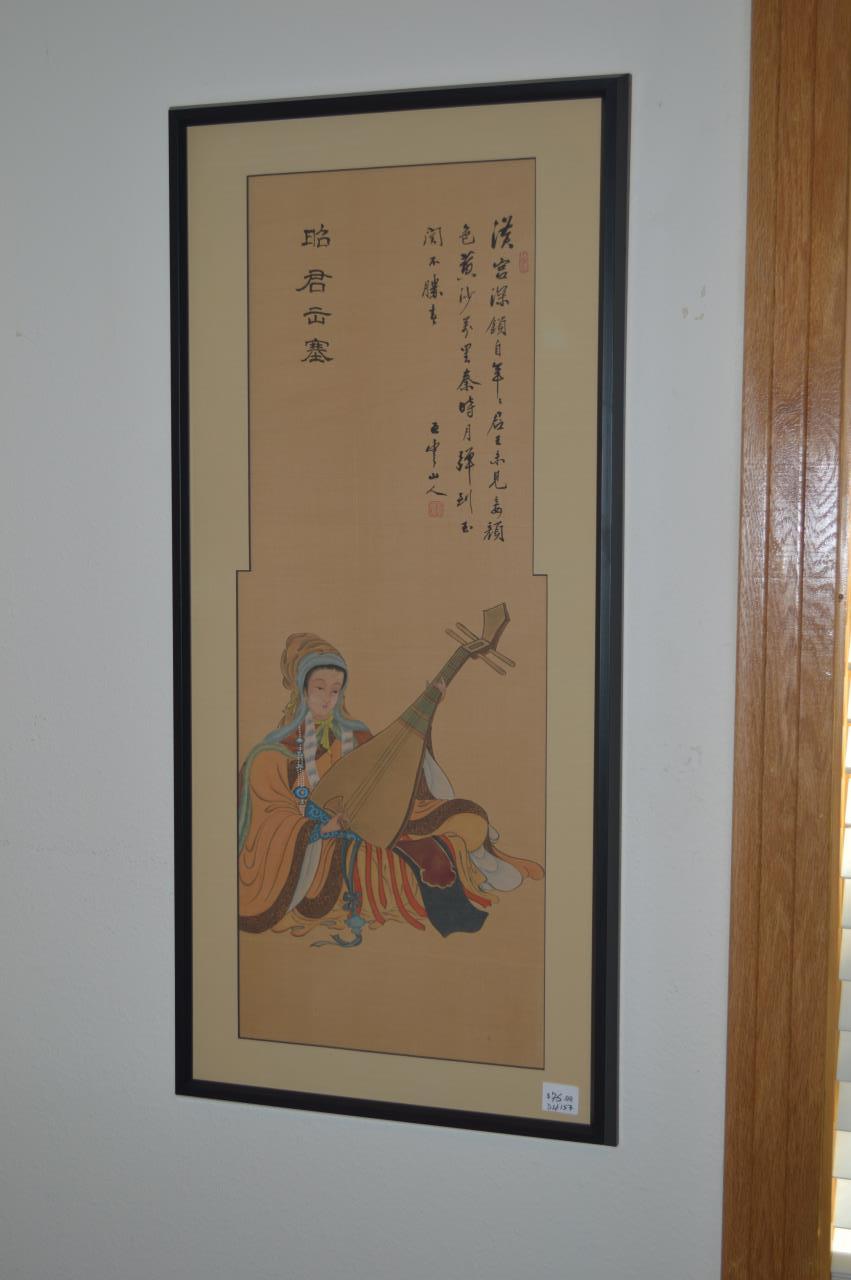 漢宮深鎖自年々君王未見妾顏
色黃沙萬里秦時月彈到玉
関不勝
五雲山人
昭君出塞
$75.00